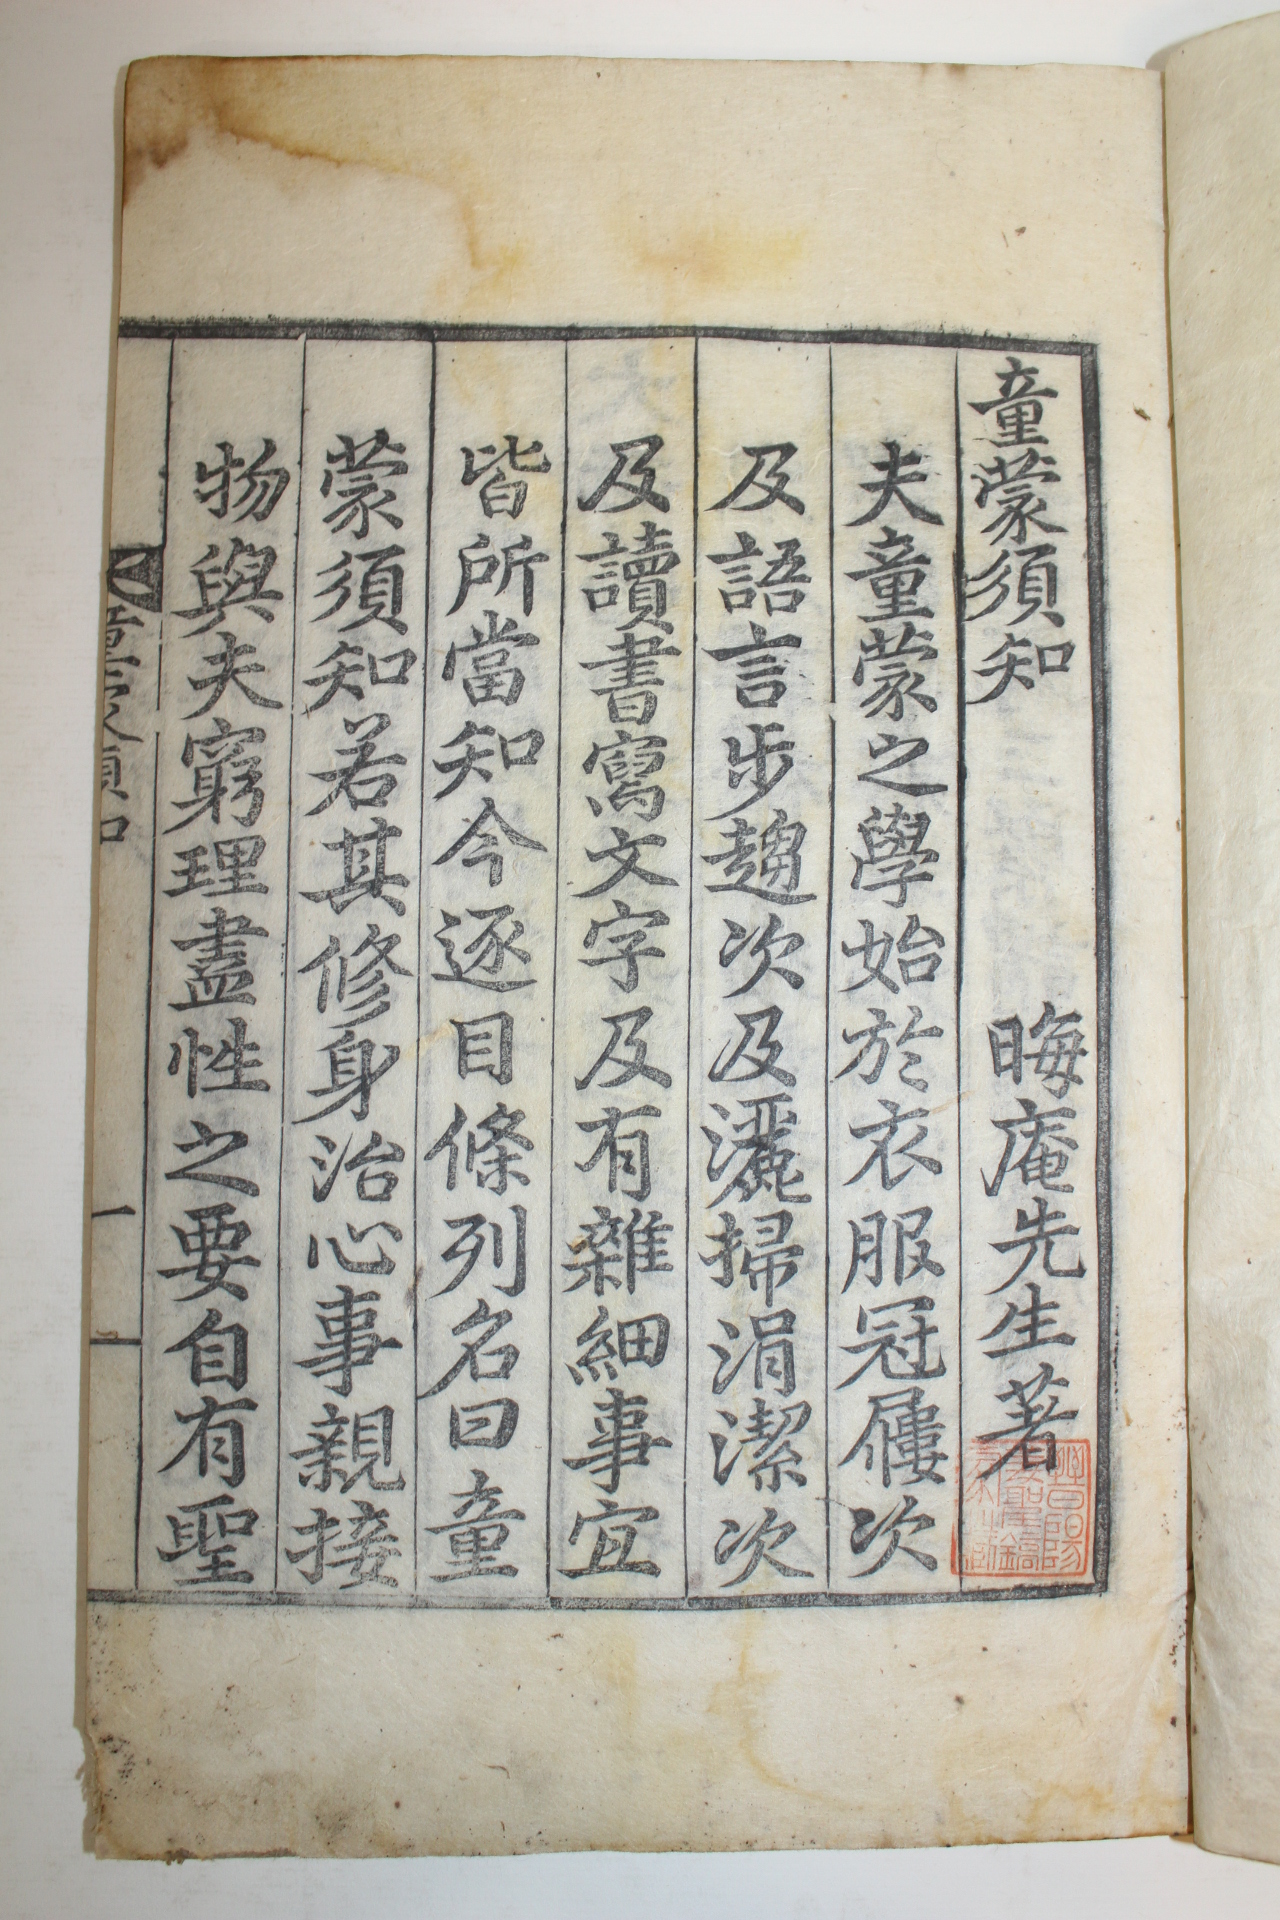 童蒙須知 晦庵先生著
夫童蒙之學始於衣服冠屨次
及語言步趨次及灑掃涓潔次
及讀書寫文字及有雜細事宜
皆所當知今逐目條列名曰童
蒙須知若其修身治心事親接
物與夫窮理盡性之要自有聖
童蒙須知
一